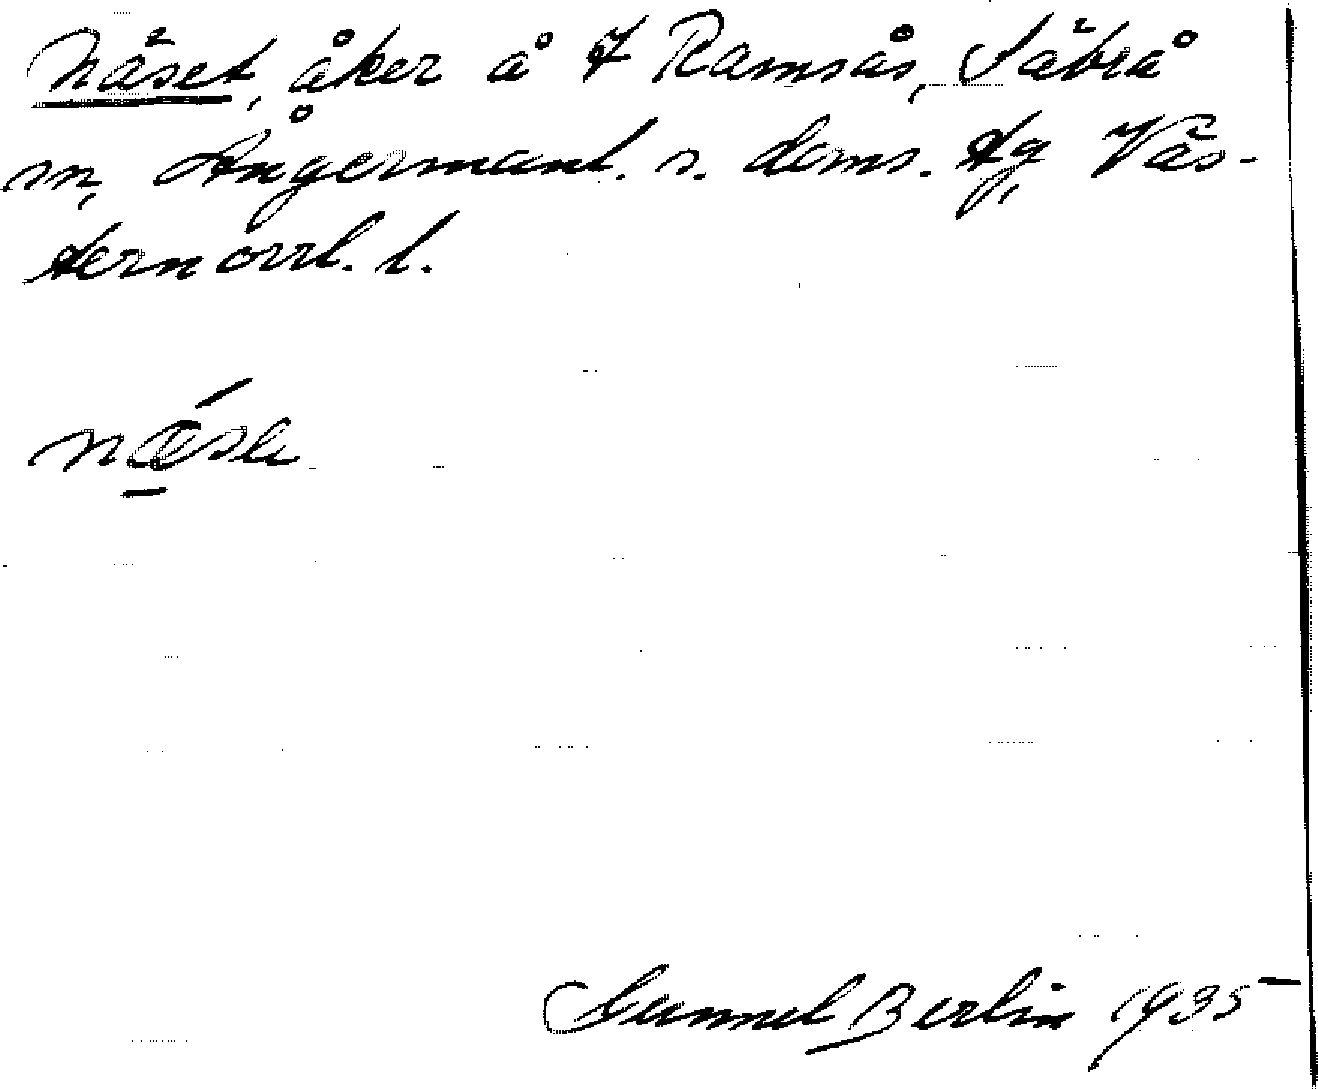 Näset, åker å 7 Ramsås, Säbrå
sn, Ångermanl. s. doms. tg, Väs-
ternorrl. l.
Gunnel Berlin 1935